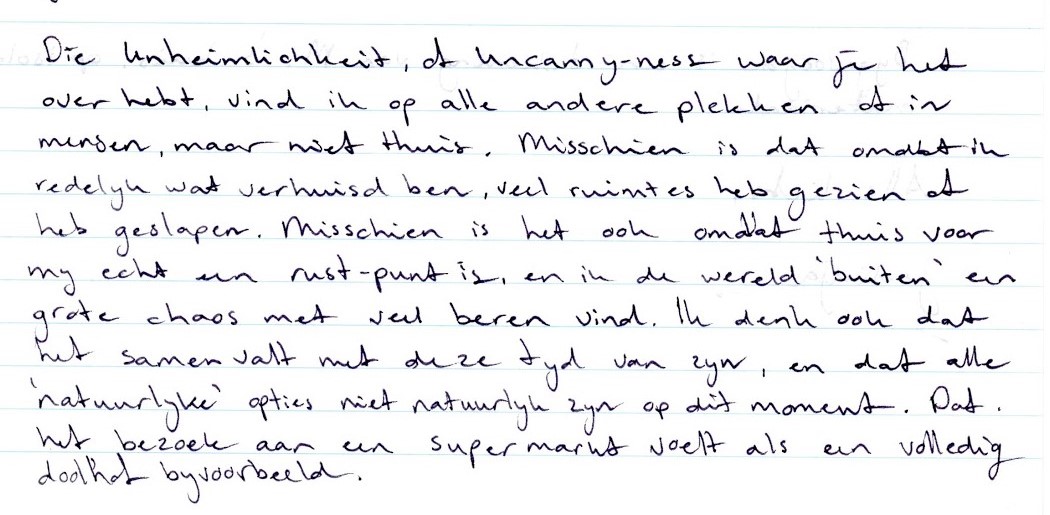 Die Unheimlichkeit, of Uncanny-ness waar je het
over hebt, vind ik op alle andere plekken of in
mensen, maar niet thuis. Misschien is dat omdat ik
redelyk wat verhuisd ben, veel ruimtes heb gezien of
heb geslapen. Misschien is het ook omdat thuis voor
my echt een rust-punt is, en ik de wereld 'buiten' een
grote chaos met veel beren vind. Ik denk ook dat
het samen valt met deze tyd van zyn, en dat alle
'natuurlyke' opties niet natuurlyk zyn op dit moment. Dat.
het bezoek aan een supermarkt voelt als een volledig
doolhof byvoorbeeld.